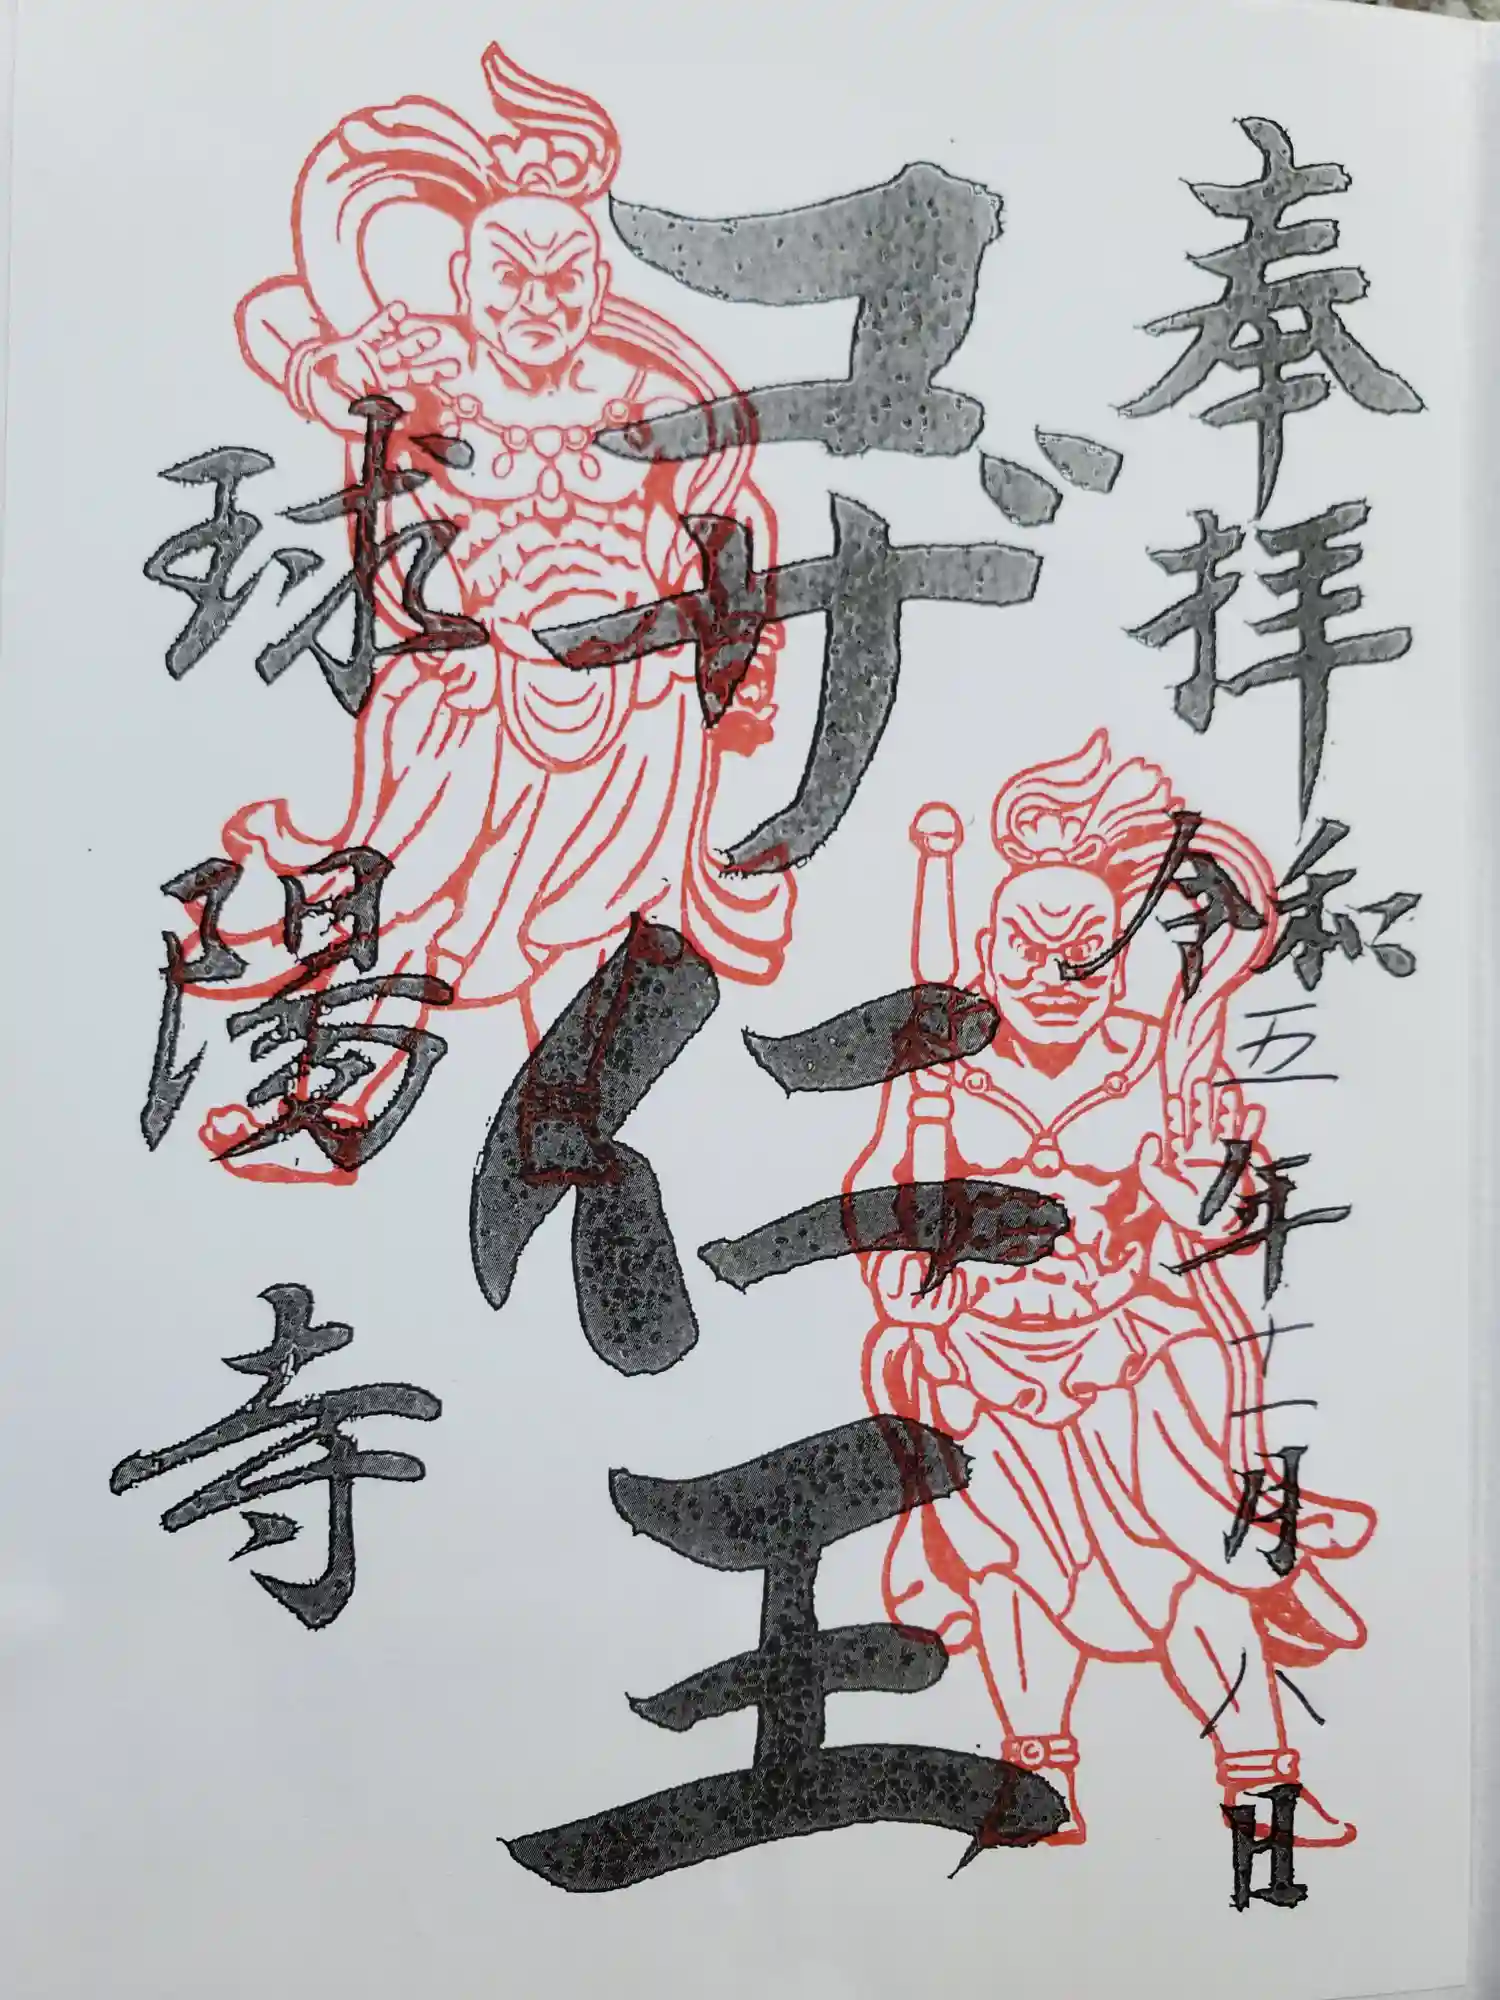 奉拝
令和五年十一月八日
コザ仁王
球陽寺